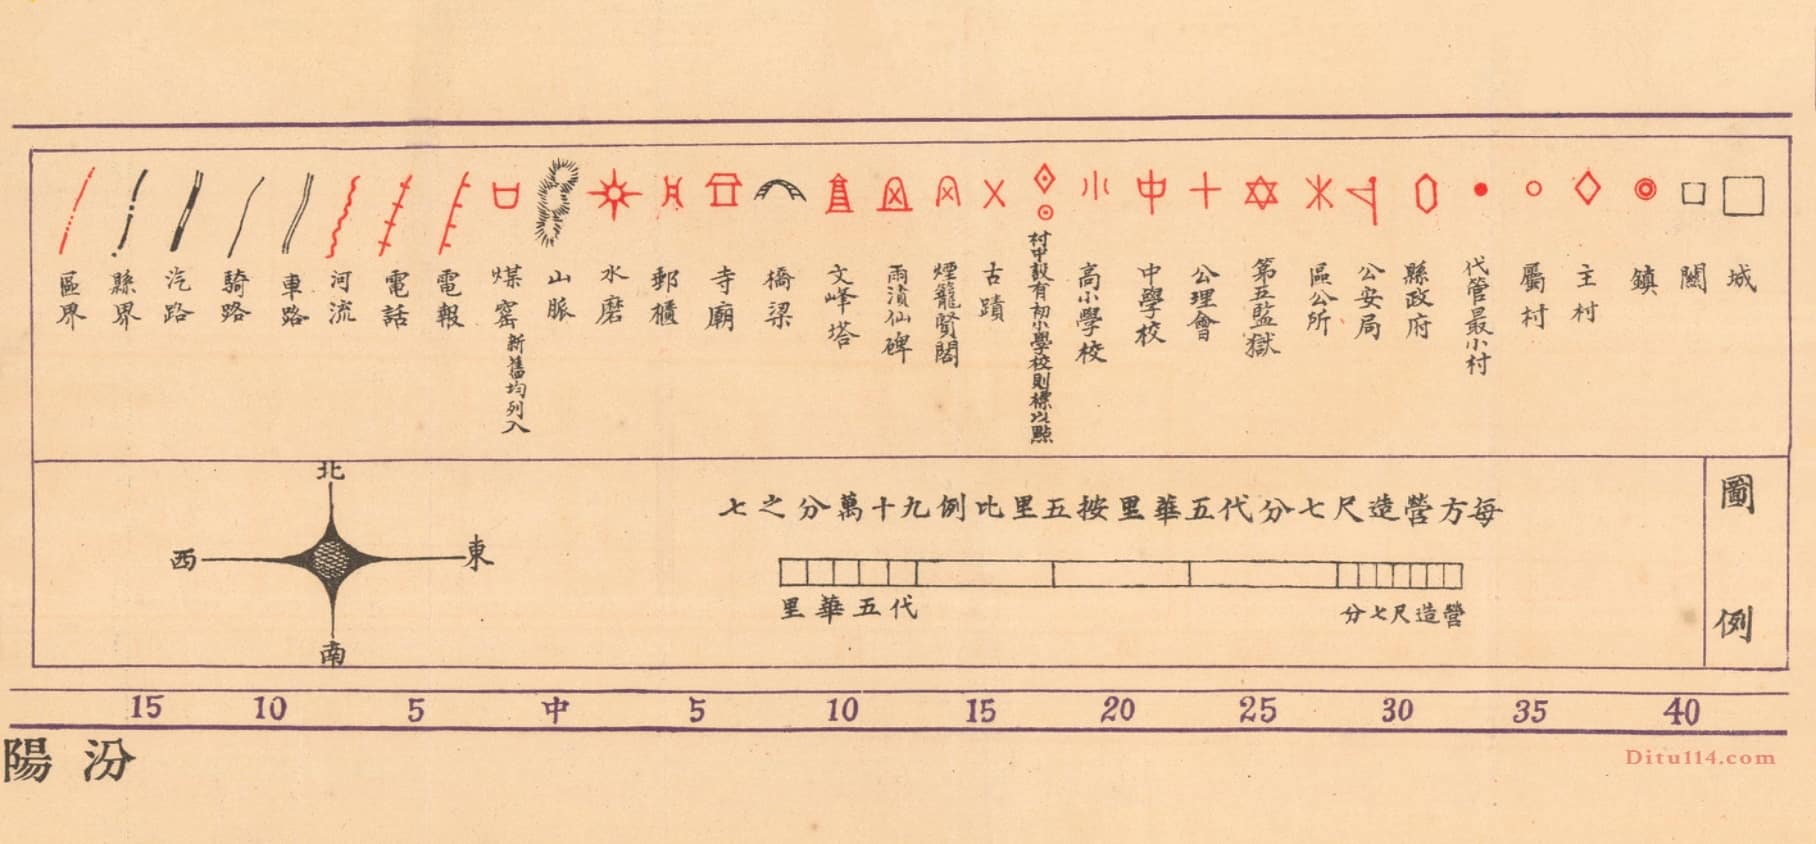 圖例
城
關
鎮
主村
屬村
代管最小村
縣政府
公安局
區公所
第五監獄
公理會
中學校
高小學校
村中設有初小學校則標以點
古蹟
煙籠賢閣
雨漬仙碑
文峰塔
橋梁
寺廟
郵櫃
水磨
山脈
煤窰 新舊均列入
電報
電話
河流
車路
騎路
汽路
縣界
區界
每方營造尺七分代五華里按五里比例九十萬分之七
營造尺七分
代五華里
北
東
西
南
15 10 5 中 5 10 15 20 25 30 35 40
汾陽
Ditu114.com